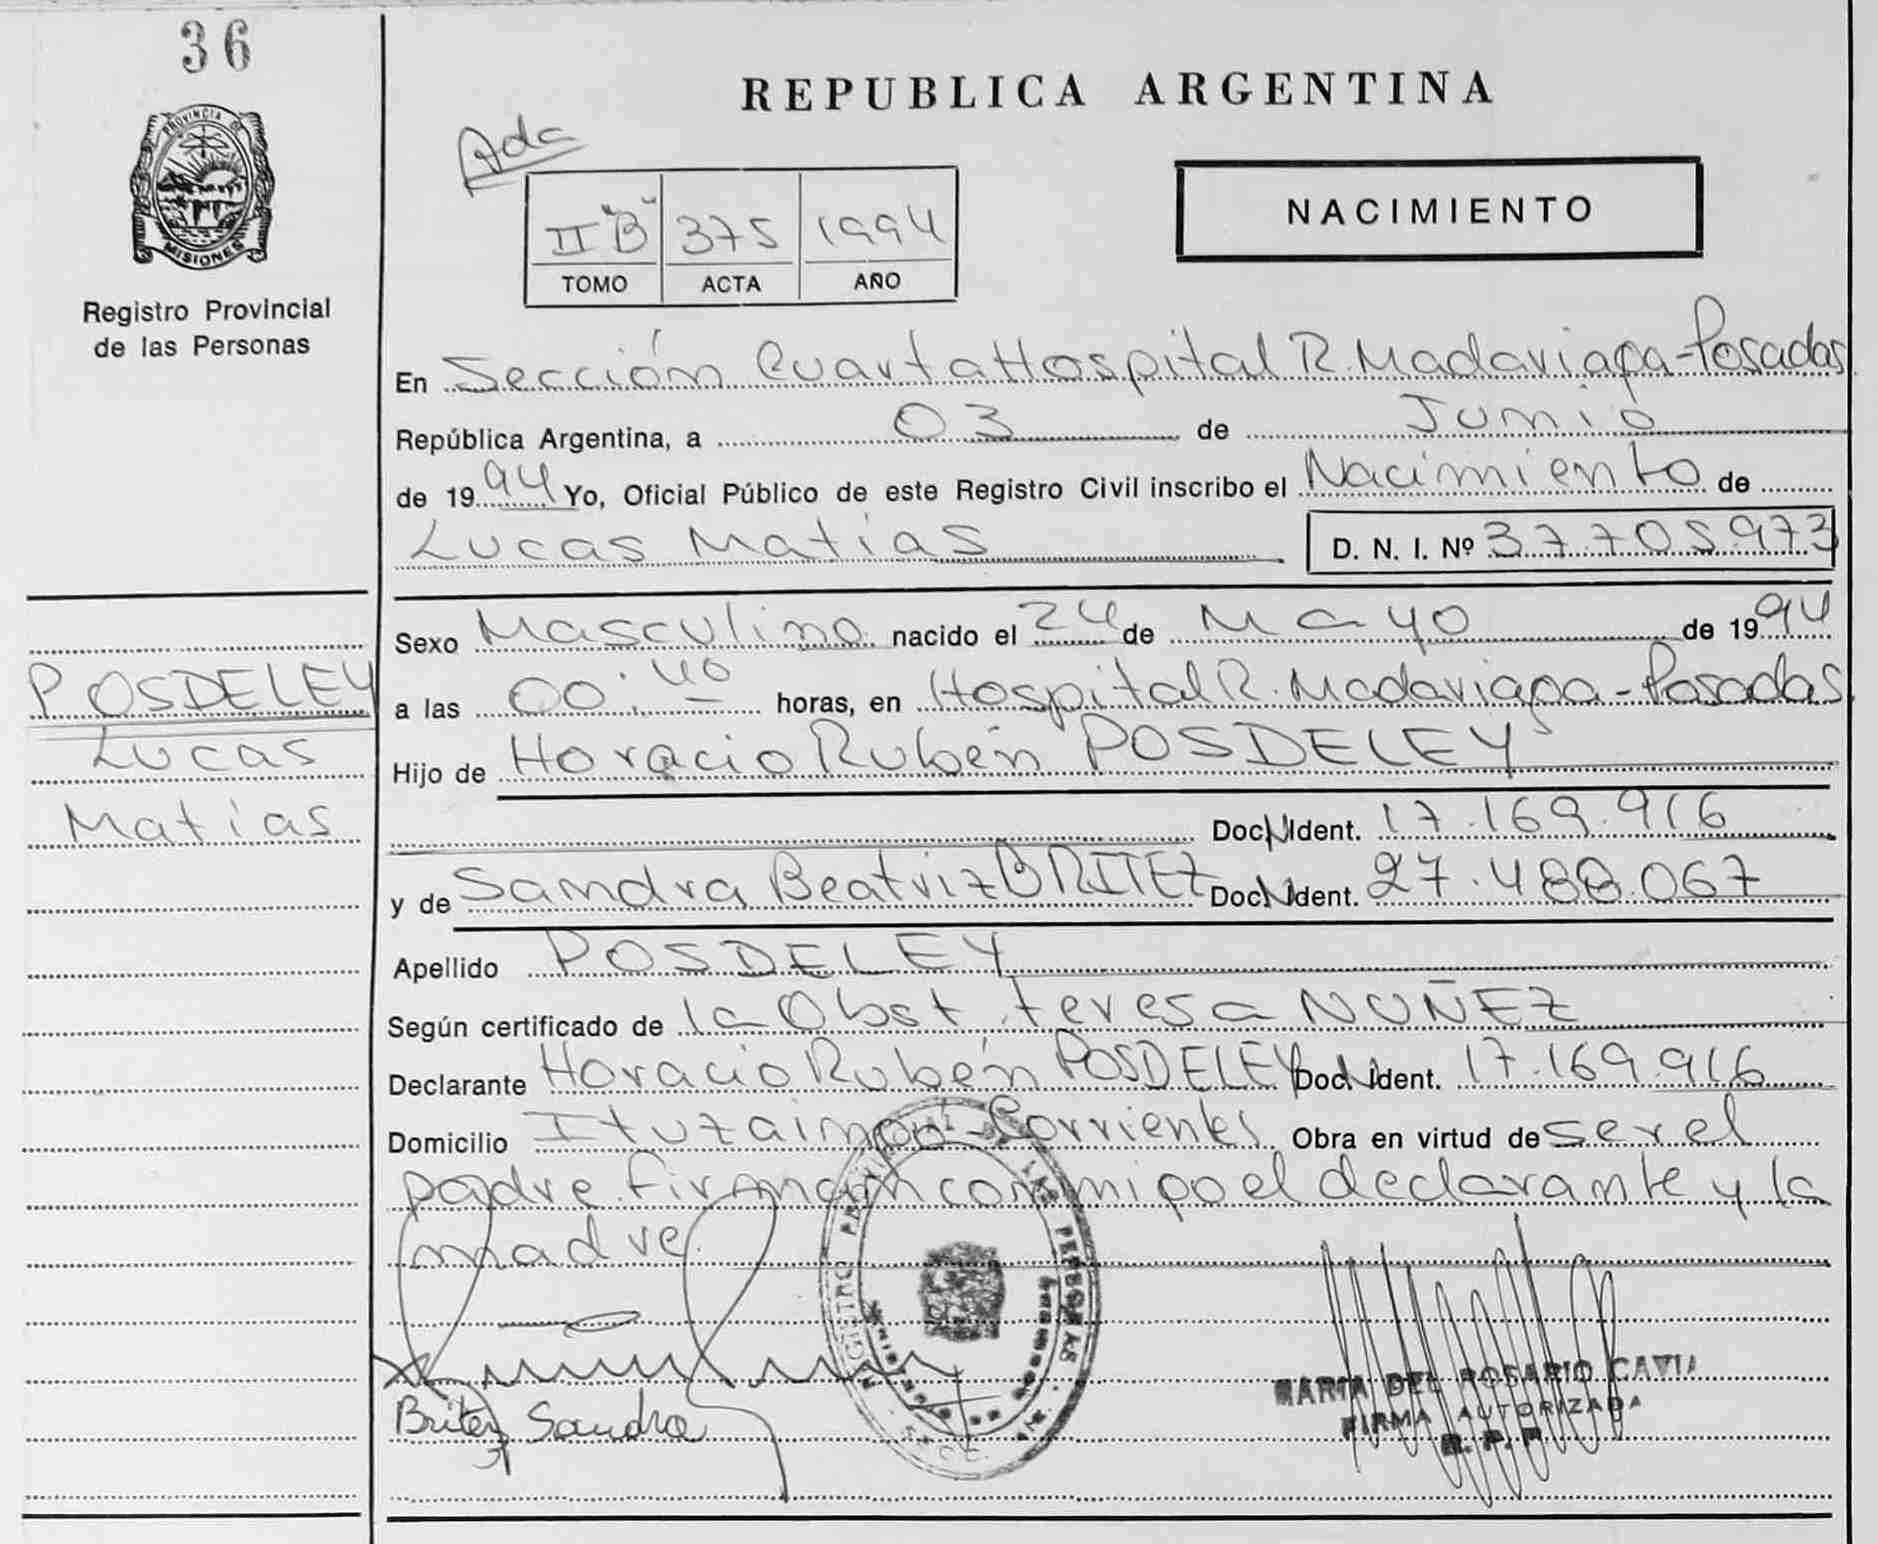 36
REPUBLICA ARGENTINA
Ada
PROVINCIA DE
MISIONES
II "B" 375 1994
TOMO ACTA AÑO
NACIMIENTO
Registro Provincial
de las Personas
En Sección Cuarta Hospital R. Madariaga - Posadas
República Argentina, a 03 de Junio
de 1994 Yo, Oficial Público de este Registro Civil inscribo el Nacimiento de
Lucas Matías D. N. I. Nº 37.705.973
POSDELEY
Lucas
Matías
Sexo Masculino nacido el 24 de Mayo de 1994
a las 00:40 horas, en Hospital R. Madariaga - Posadas.
Hijo de Horacio Rubén POSDELEY
Doc N Ident. 17.169.916
y de Sandra Beatriz BRITEZ Doc N Ident. 27.488.067
Apellido POSDELEY
Según certificado de la Obst. Teresa NUÑEZ
Declarante Horacio Rubén POSDELEY Doc N Ident. 17.169.916
Domicilio Ituzaingó - Corrientes Obra en virtud de ser el
padre. Firman conmigo el declarante y la
madre.
REGISTRO PROVINCIAL LAS PERSONAS
Britez Sandra
MARIA DEL ROSARIO CAVIA
FIRMA AUTORIZADA
R. P. P.